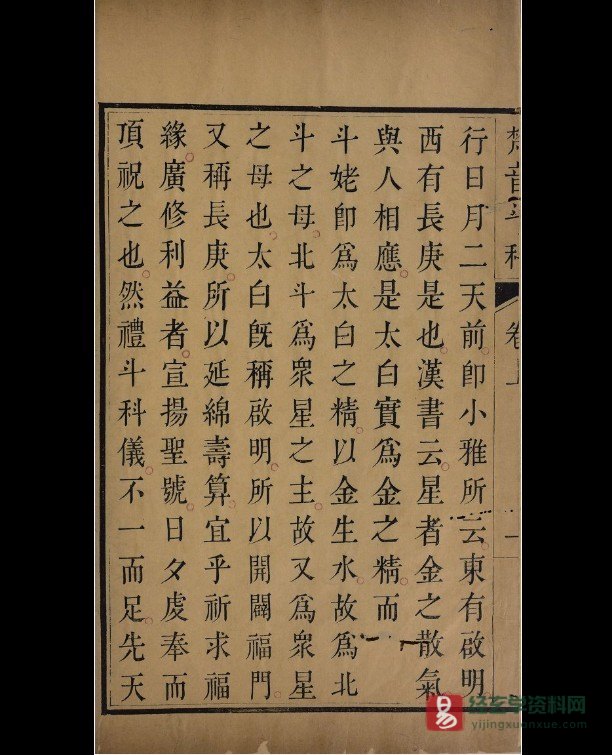 梵音斗科 卷上 一
行日月二天前即小雅所云東有啟明
西有長庚是也漢書云星者金之散氣
與人相應是太白實爲金之精而
斗姥即爲太白之精以金生水故爲北
斗之母北斗爲眾星之主故又爲眾星
之母也太白旣稱啟明所以開闢福門
又稱長庚所以延綿壽算宜乎祈求福
緣廣修利益者宣揚聖號日夕虔奉而
頂祝之也然禮斗科儀不一而足先天
易
经玄学资料网
yijingxuanxue.com